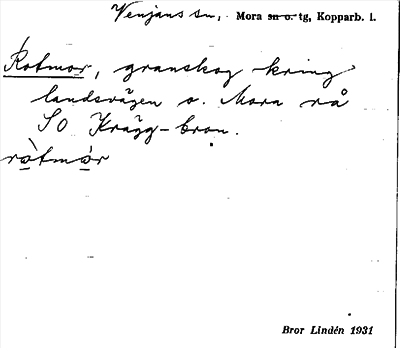 Venjans sn, Mora sn o. tg, Kopparb. l.
Rotmor, granskog kring
landsvägen o. Mora rå
SO Krågg-bron.
ròtmór
Bror Lindén 1931